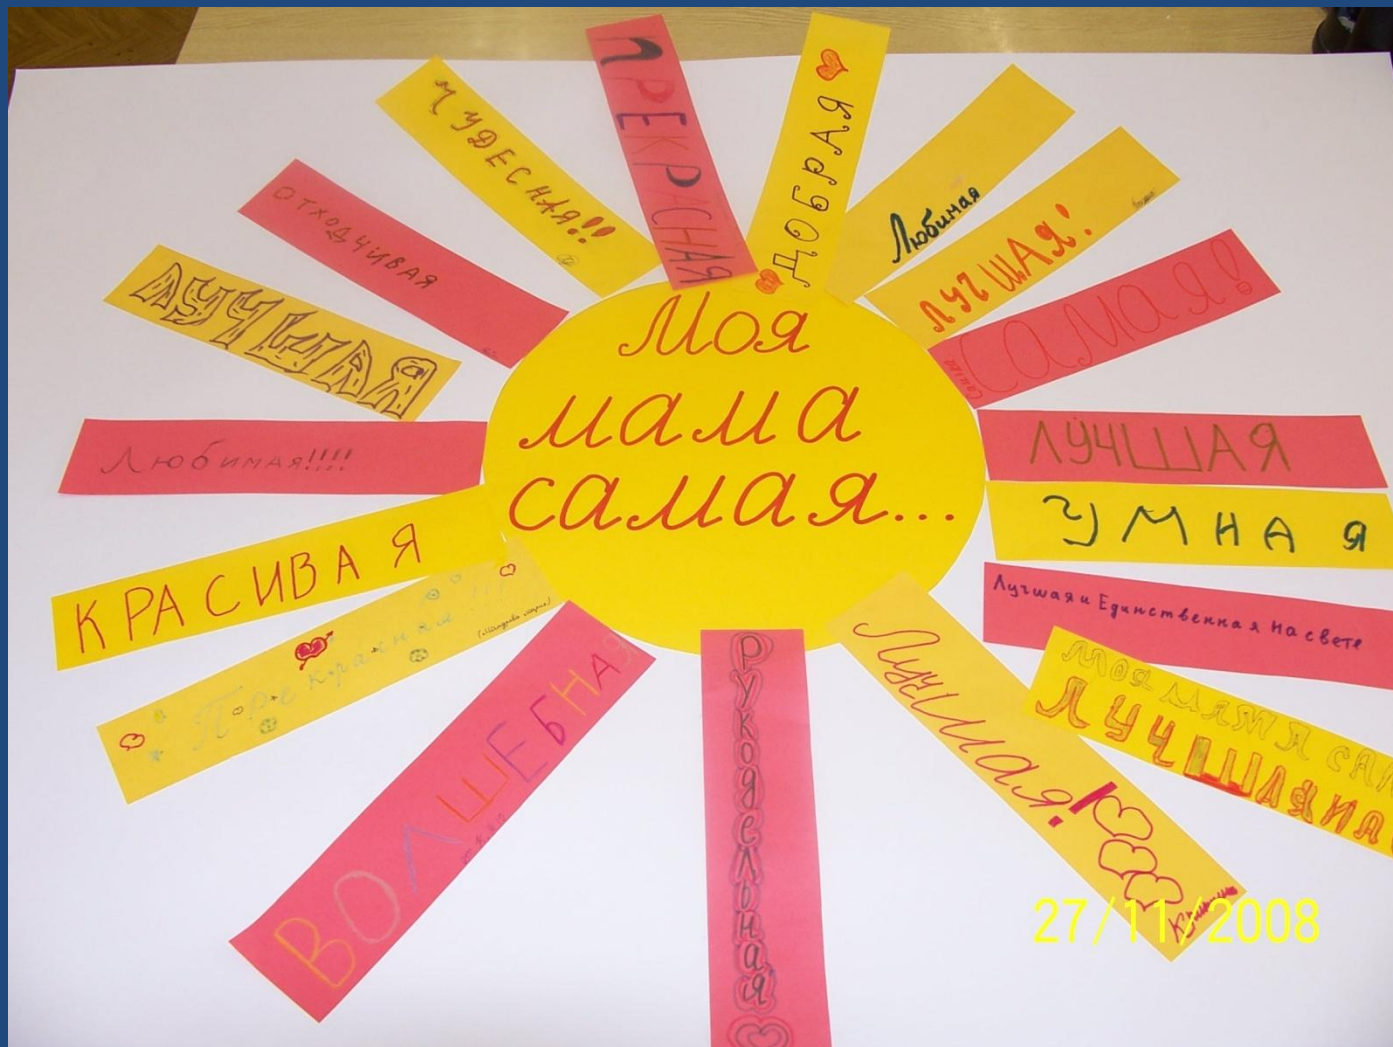 Моя
мама
самая...
ПРЕКРАСНАЯ
ДОБРАЯ
Любимая
ЛУЧШАЯ!
САМАЯ!
ЛУЧШАЯ
УМНАЯ
Лучшая и Единственная на свете
МОЯ МАМА САМ
ЛУЧШАЯ НА
Лучшая!
РУКОДЕЛЬНАЯ
ВОЛШЕБНАЯ
Прекрасная
КРАСИВАЯ
Любимая!!!!
ЛУЧШАЯ
ОТХОДЧИВАЯ
ЧУДЕСНАЯ!!
27/11/2008